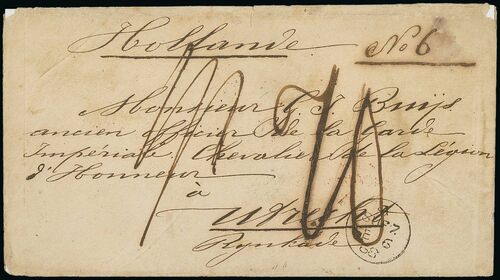 Hollande No 6
Monsieur C. J. Buijs
ancien officier de la Garde
Impériale, Chevalier de la Légion
d'Honneur
à
Utrecht
Rynkade